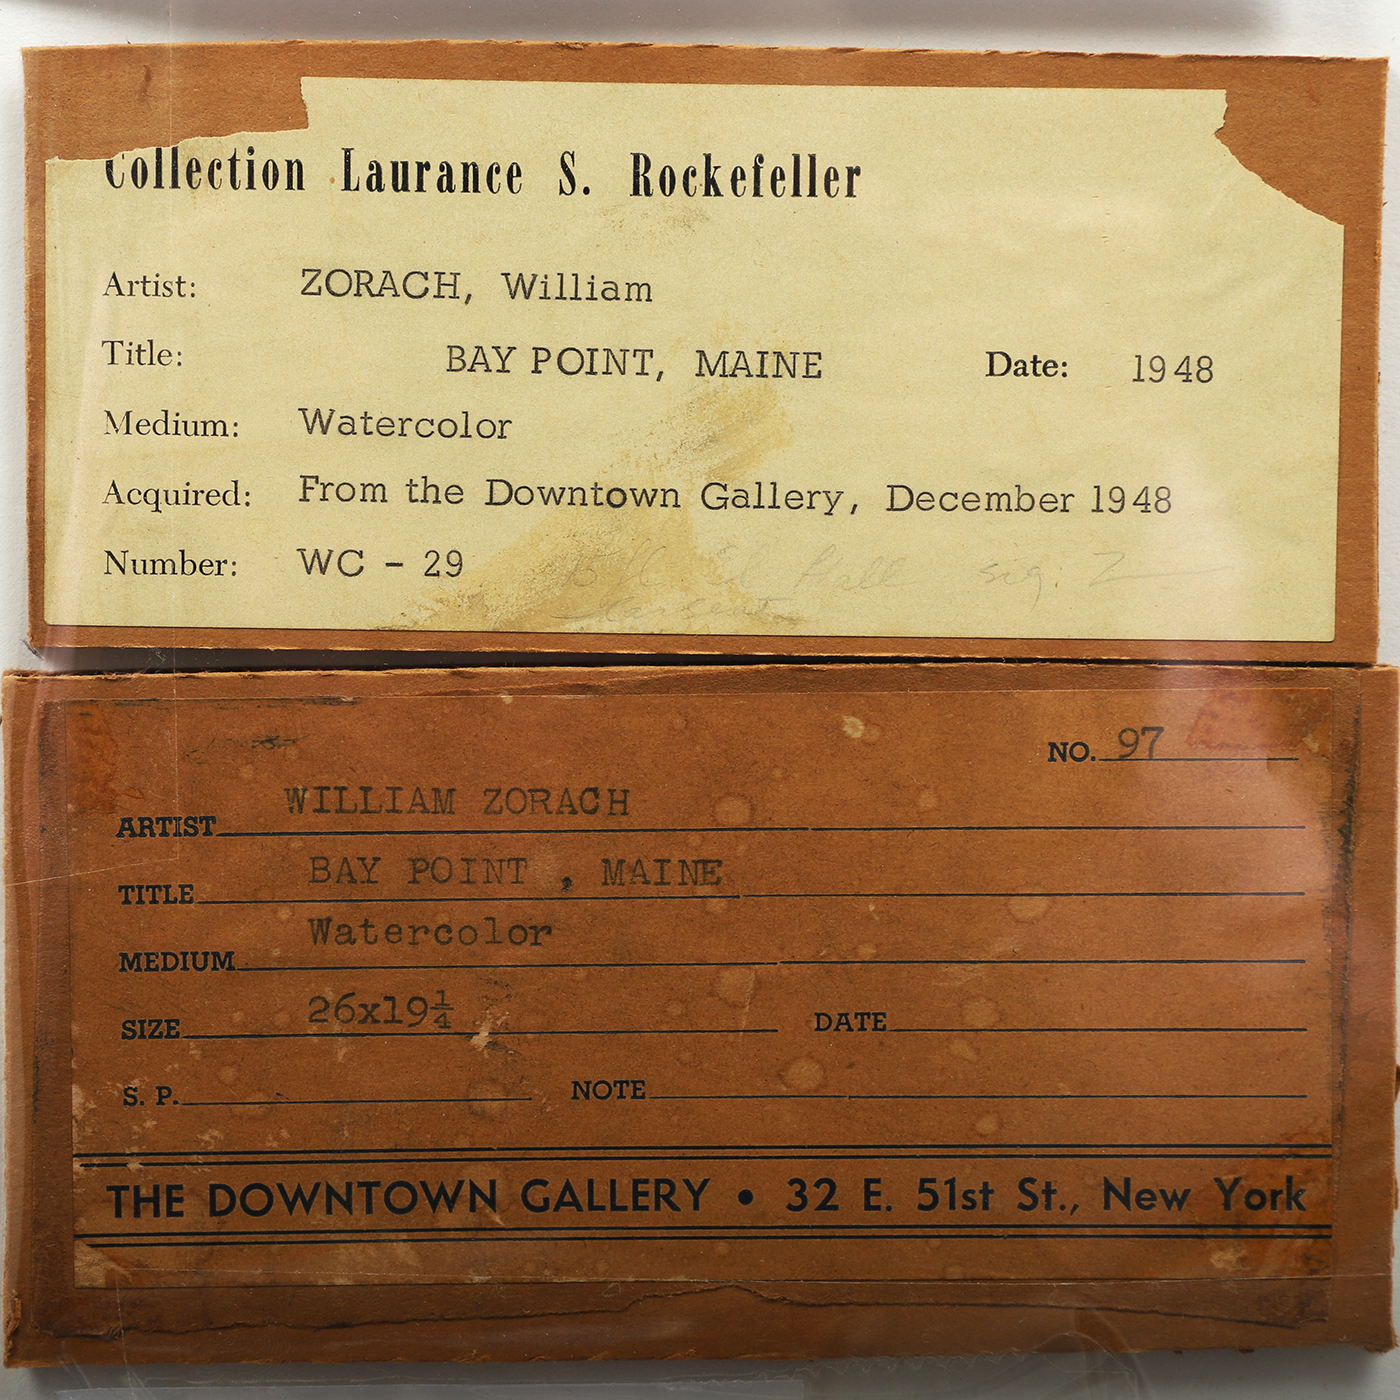 Collection Laurance S. Rockefeller
Artist: ZORACH, William
Title: BAY POINT, MAINE Date: 1948
Medium: Watercolor
Acquired: From the Downtown Gallery, December 1948
Number: WC - 29
sig: Z
NO. 97
ARTIST WILLIAM ZORACH
TITLE BAY POINT , MAINE
MEDIUM Watercolor
SIZE 26x19¼ DATE
S. P. NOTE
THE DOWNTOWN GALLERY • 32 E. 51st St., New York